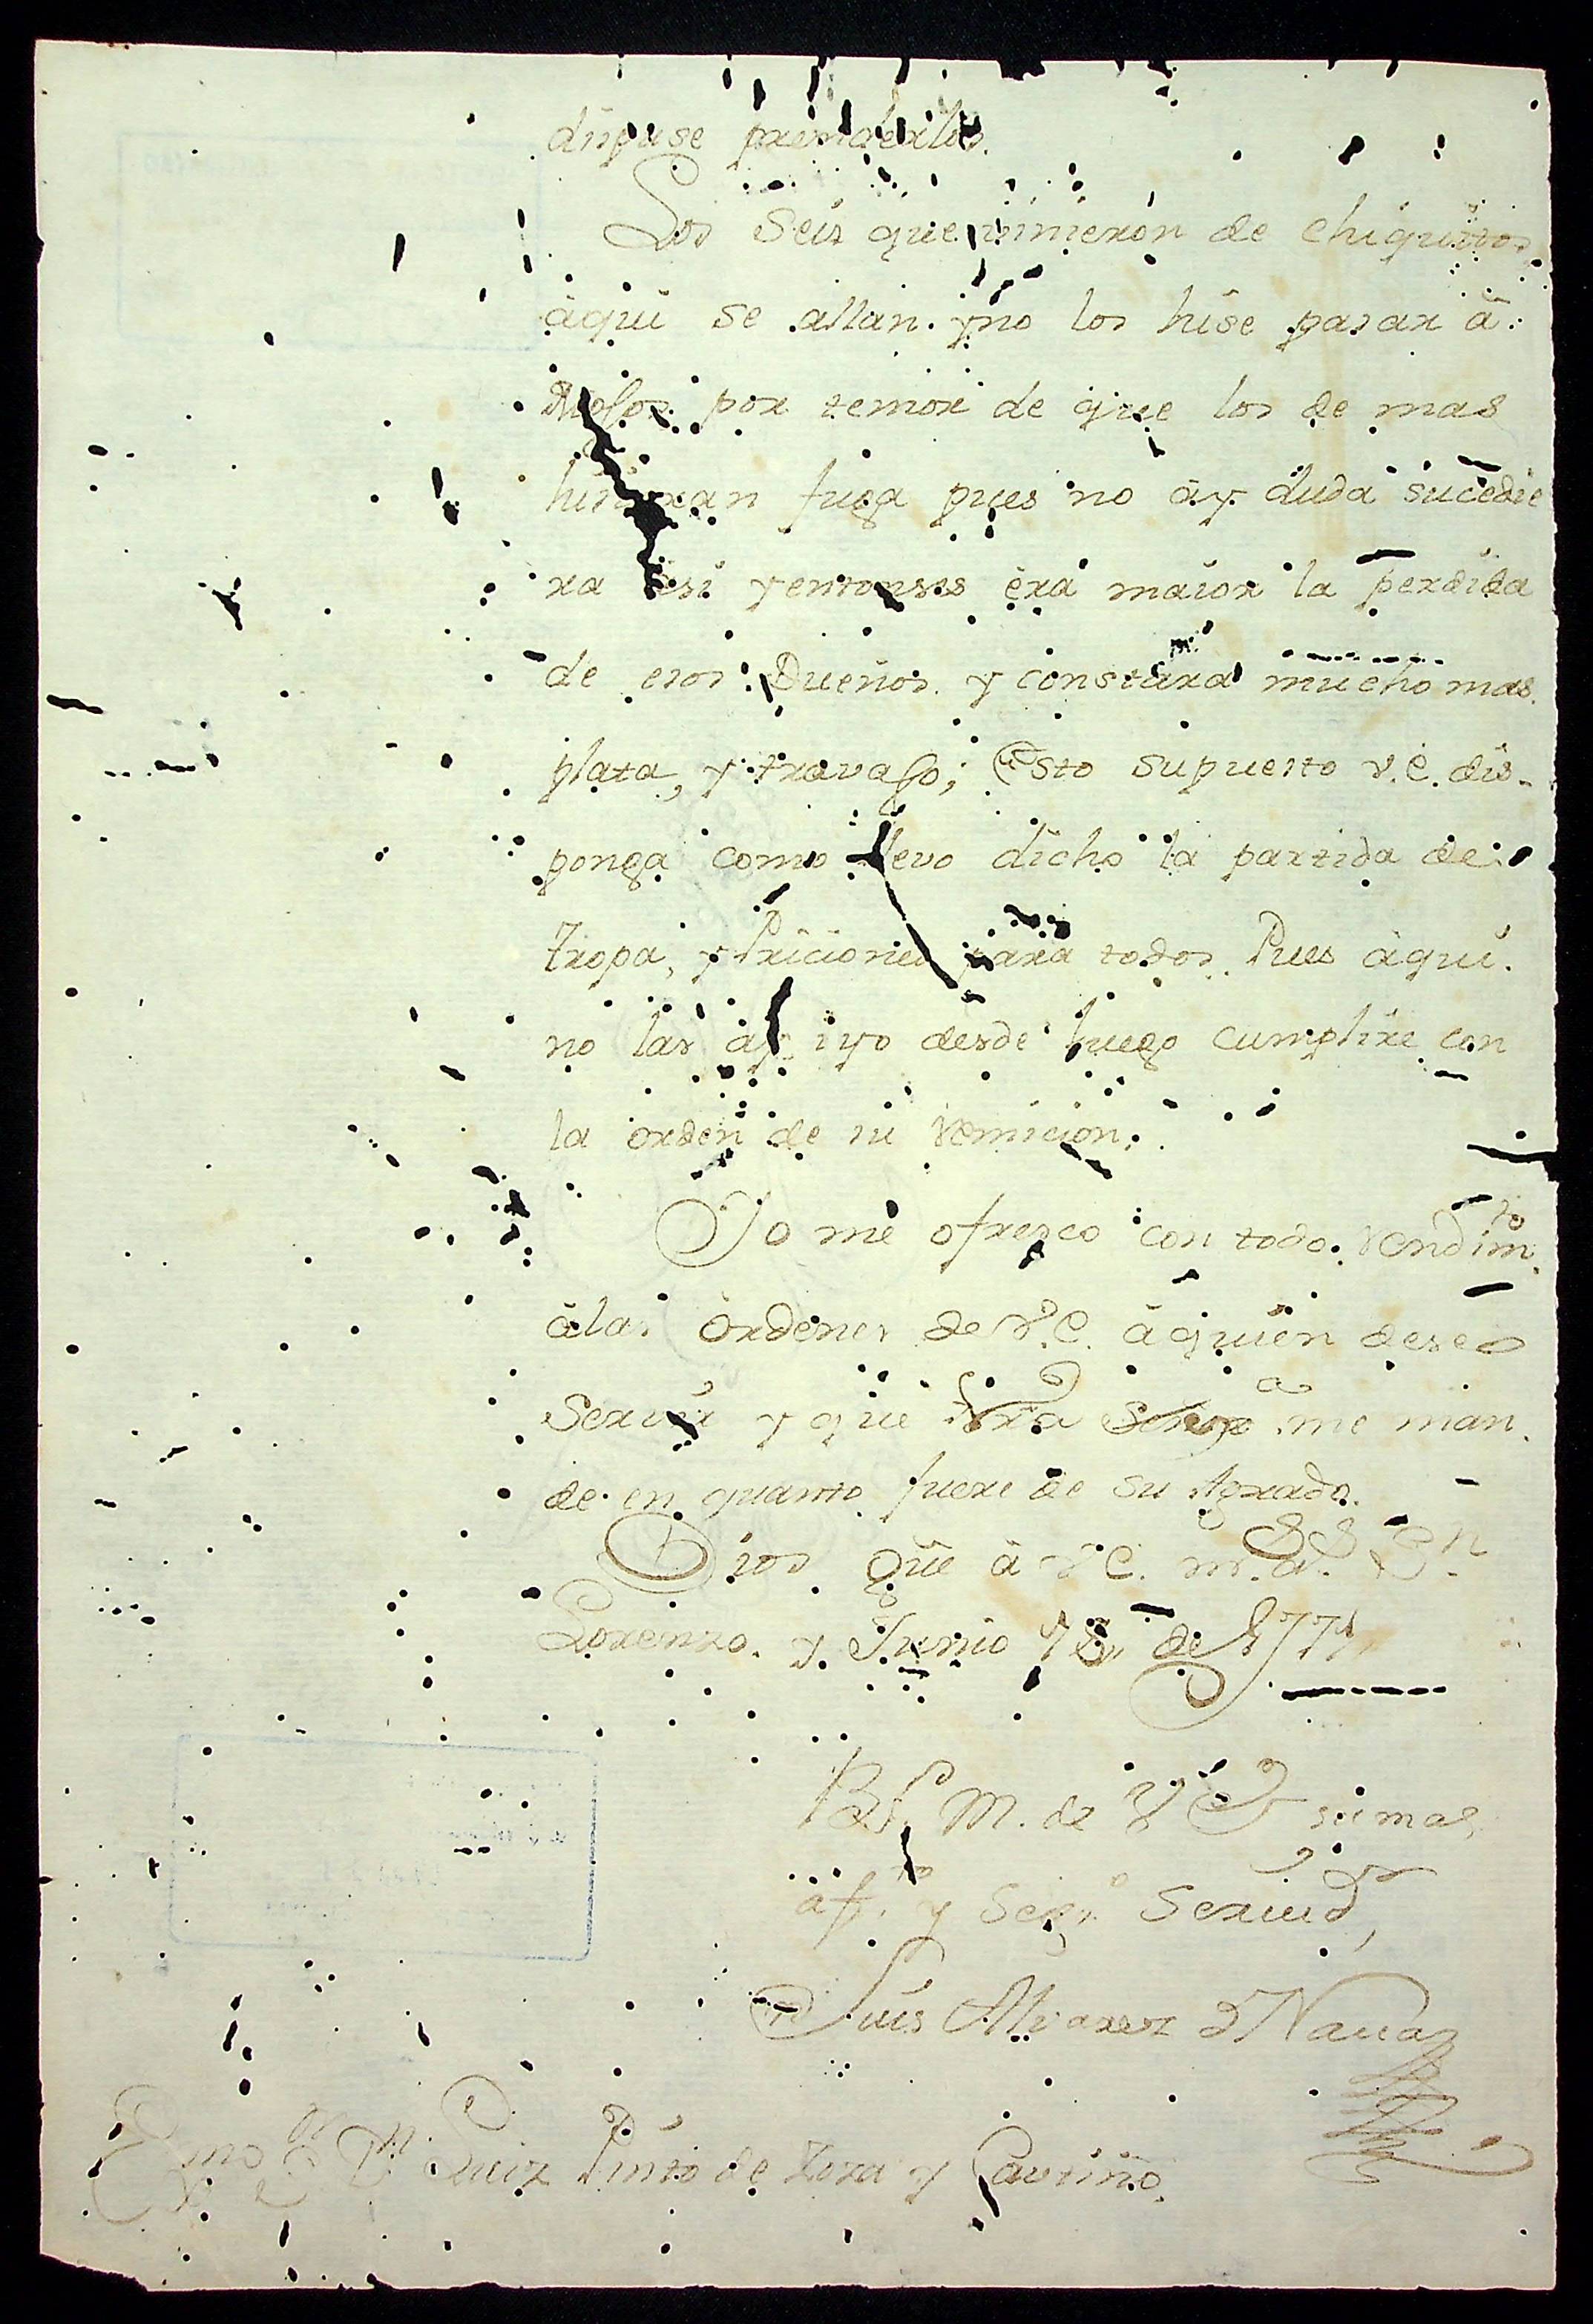 dispuse prenderlos.
Los Seis que vinieron de chiquitos,
àqui se allan. y no los hise pasar â
Mojos por temor de que los de mas
hisieran fuga pues no áy duda sucedie
ra àsi y entonses èra maior la perdida
de esos Dueños y constara mucho mas
plata, y travajo; Esto supuesto V.E. dis-
ponga como llevo dicho la partida de
tropa, y Priciones para todos. Pues àqui
no las ay iyo desde luego cumplire con
la orden de su remicion.
Yo me ofresco con todo rendim.to
âlas òrdenes de V.E. âquien deseo
Servir y que me man
de en quanto fuere de su Agrado.
Dios gûe â V E. m.s a.s S.n
Lorenzo. y Junio de 1771
B L M. de V E su mas
af.to y Seg.o Servid.or
Luis Alvarez d Nava
Exmo S.r D.n Luiz Pinto de Zoza y Coutiño.